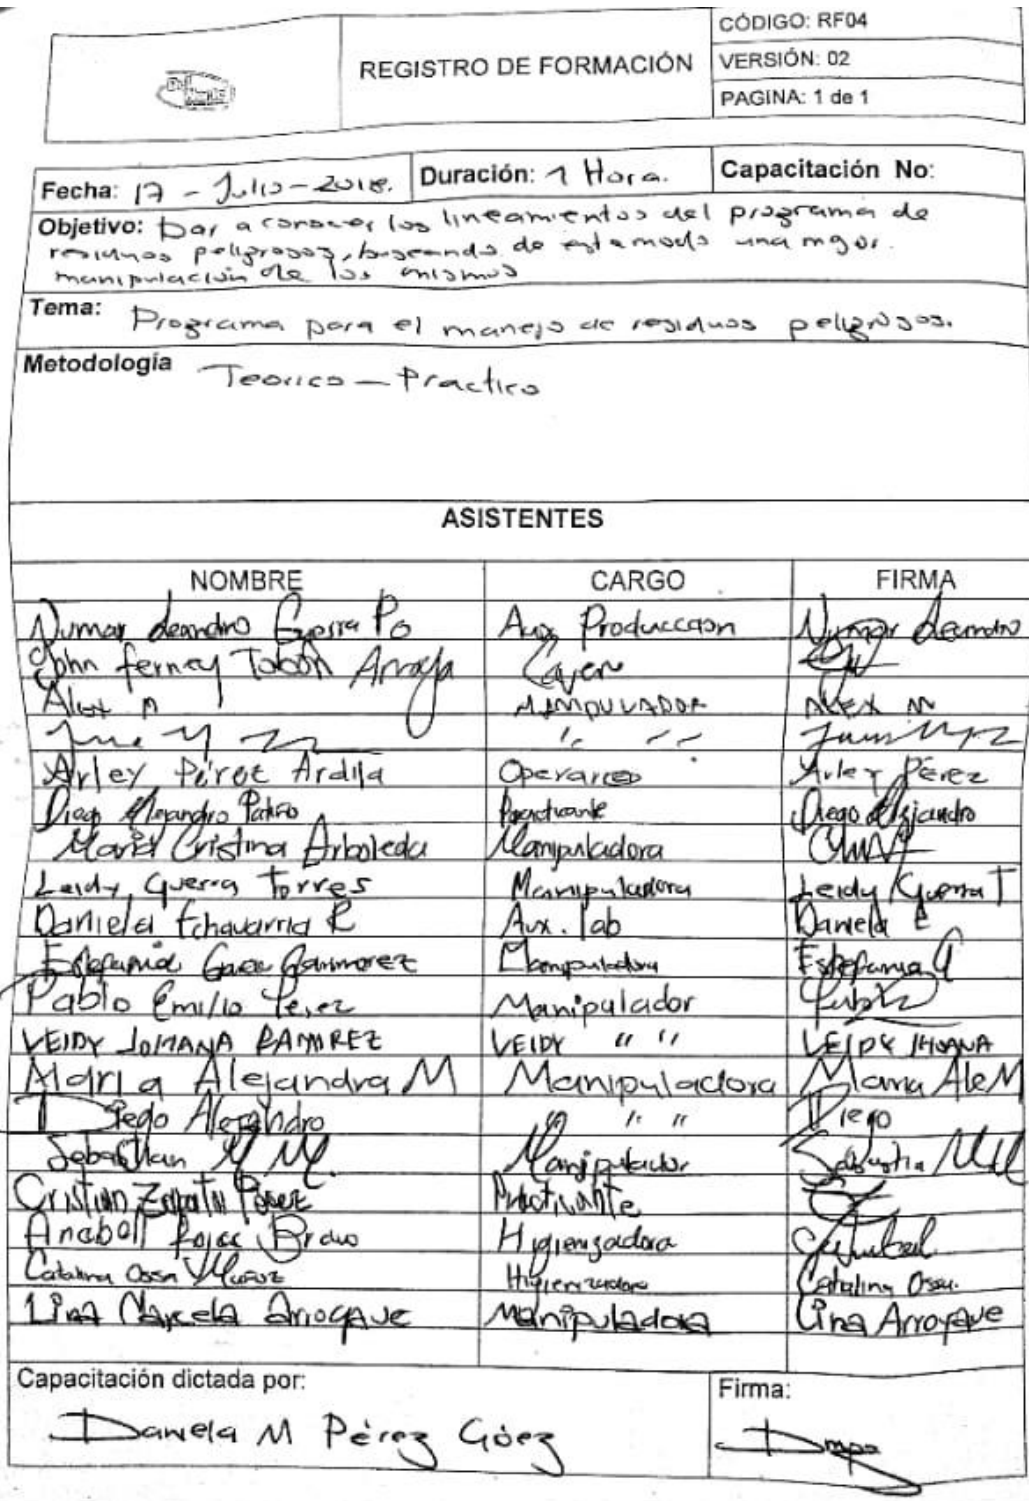 CÓDIGO: RF04
REGISTRO DE FORMACIÓN
VERSIÓN: 02
PAGINA: 1 de 1
Fecha: 17 - Julio - 2018. Duración: 1 Hora. Capacitación No:
Objetivo: Dar a conocer los lineamientos del programa de
residuos peligrosos, buscando de este modo una mejor
manipulación de los mismos
Tema: Programa para el manejo de residuos peligrosos.
Metodología Teorico - Practico
ASISTENTES
NOMBRE CARGO FIRMA
Numar Leandro Aux Produccion Numar Leandro
John ferney Tobón
Alex M MANIPULADOR ALEX M
" "
Arley Pérez Ardila Operario Arley Pérez
Diego Alejandro Patiño Practicante Diego Alejandro
Maria Cristina Arboleda Manipuladora
Leidy Guerra Torres Manipuladora Leidy Guerra T
Daniela Echavarria R Aux. lab Daniela E
Estefania Manipuladora Estefania G
Pablo Emilio Perez Manipulador
LEIDY JOHANA RAMIREZ LEIDY " " LEIDY JHOANA
Maria Alejandra M Manipuladora Maria Ale M
Diego Alejandro " " Diego
Sebastian M M. Manipulador
Cristian Zapata Perez Practicante
Anabell Rojas Bravo Higienizadora
Catalina Ossa Muñoz Higienizadora Catalina Ossa.
Lina Marcela Arroyave Manipuladora Lina Arroyave
Capacitación dictada por: Firma:
Daniela M Pérez Góez Dmpg